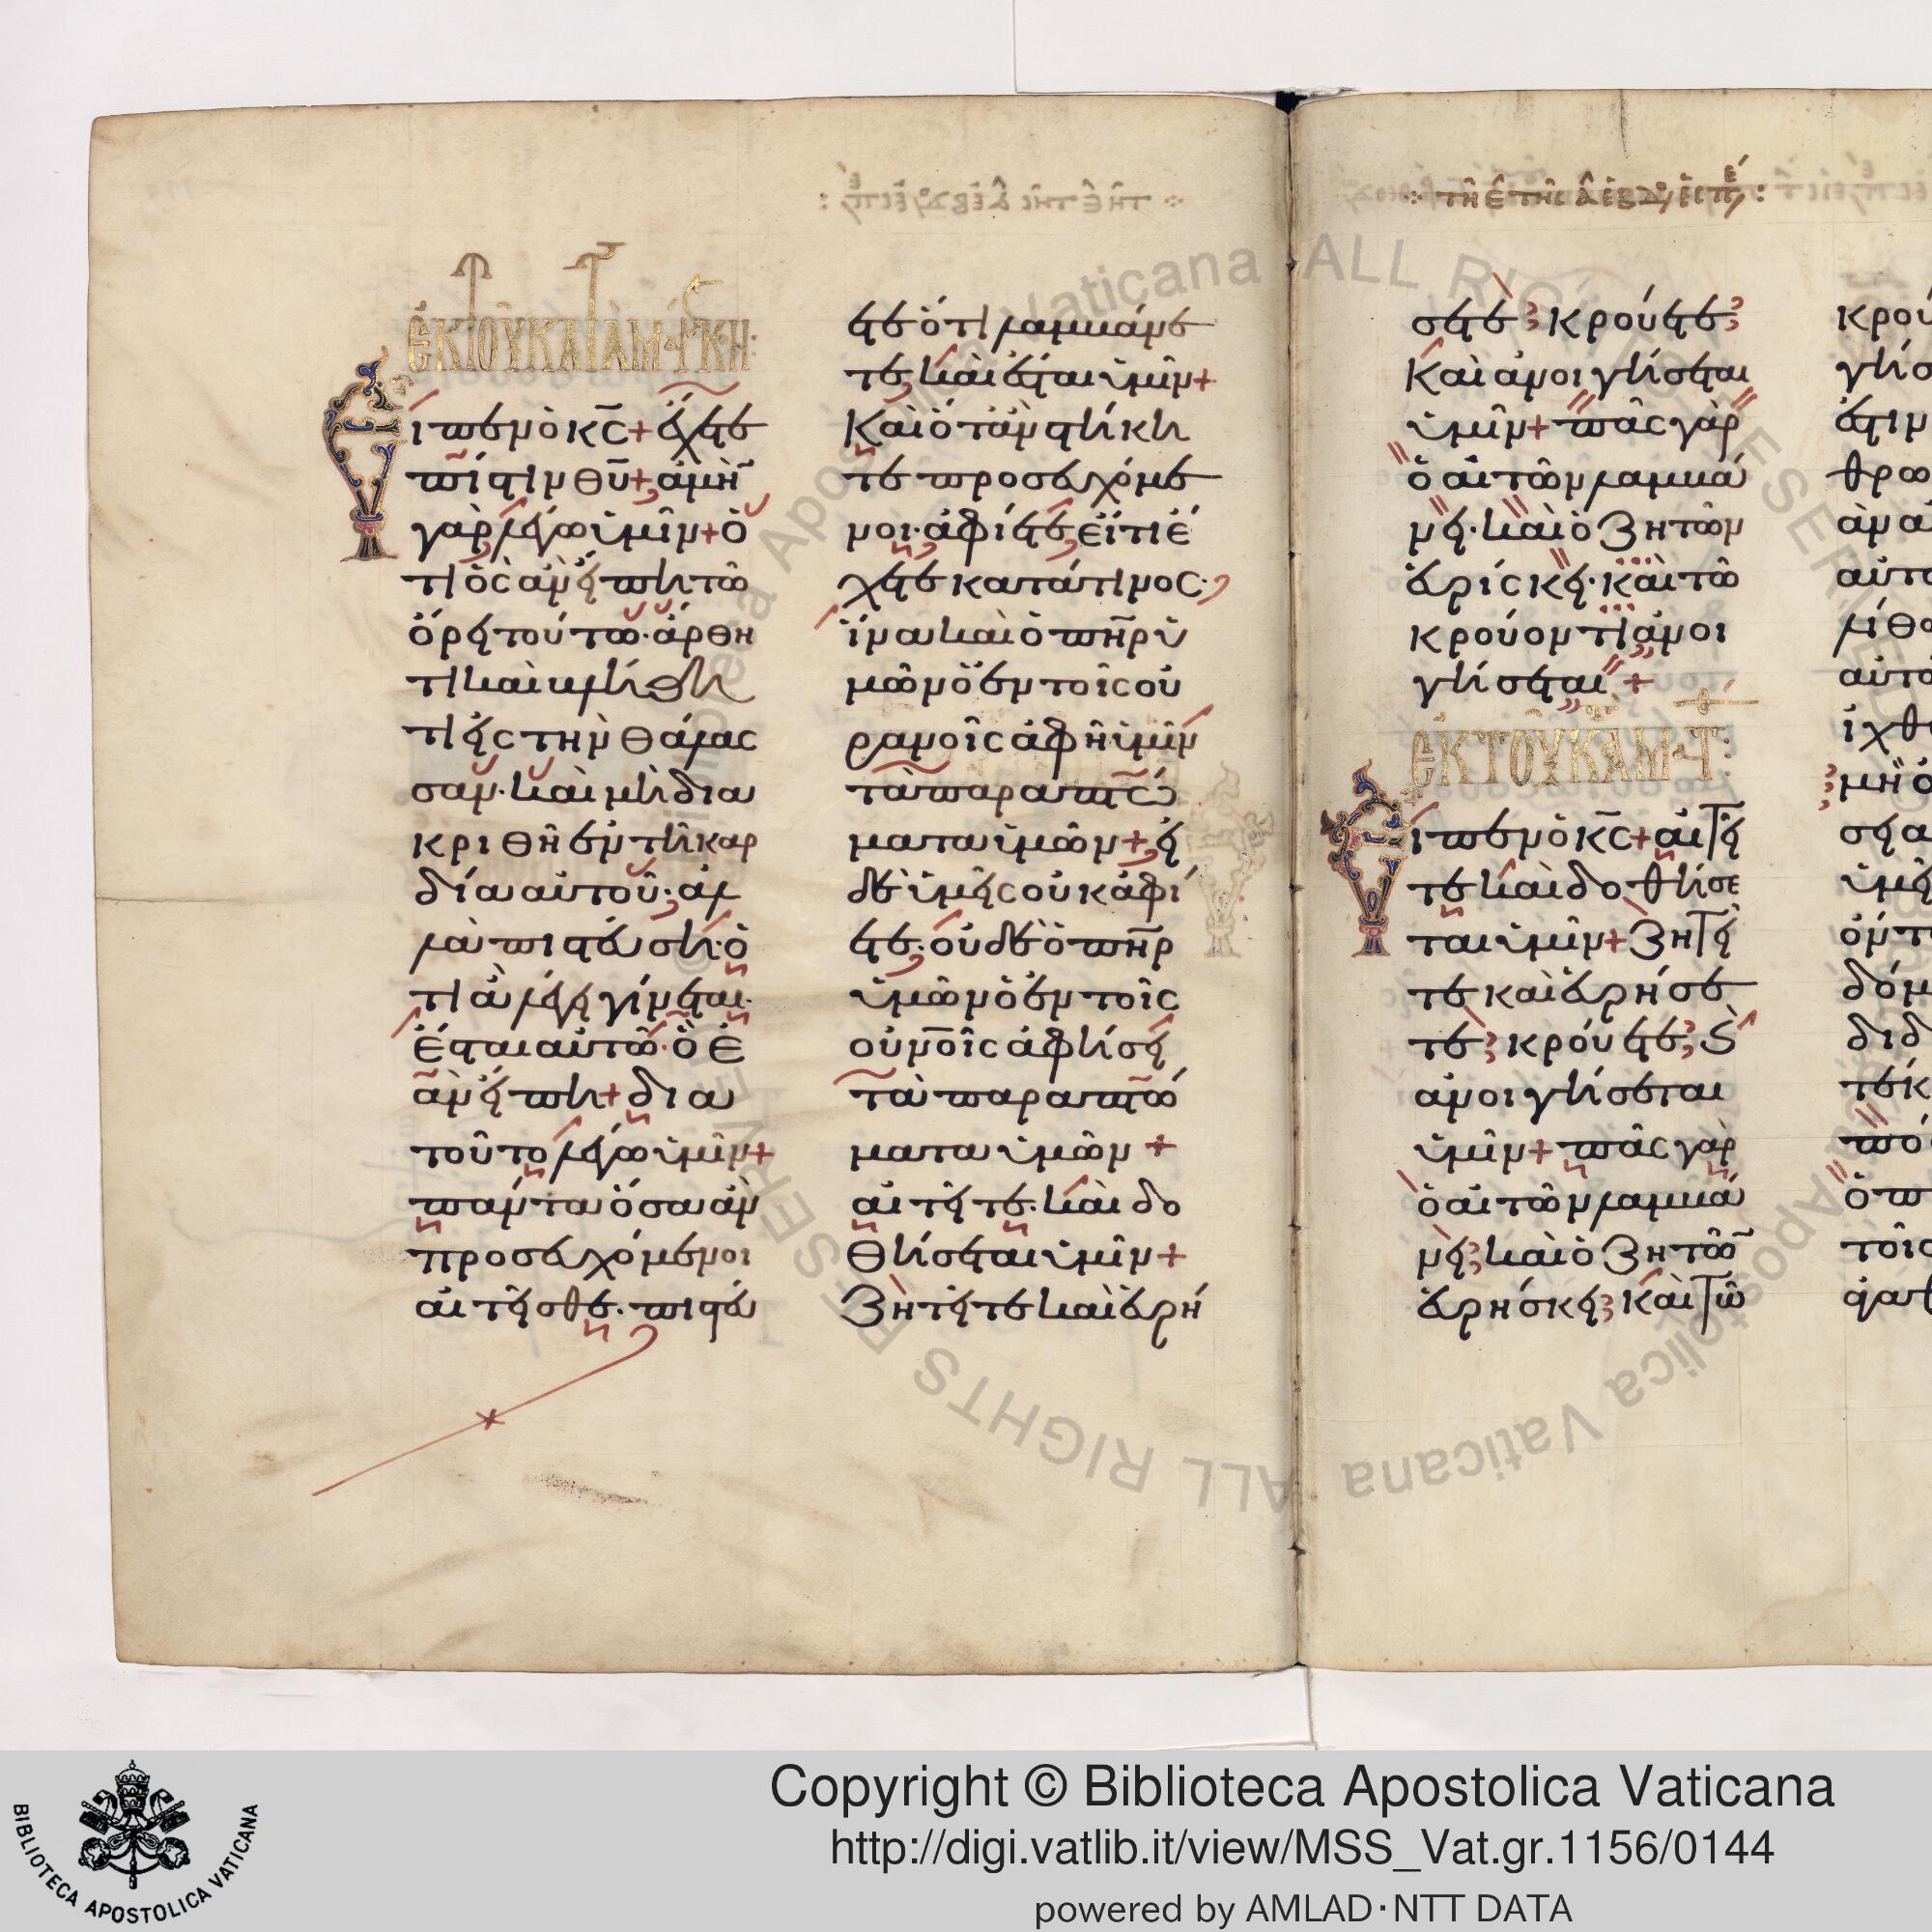 ἐκ τοῦ κατὰ μ·ρκη:
Εἶπεν ὁ κ̅ς̅+ ἔχετε
πίστιν θ̅υ̅+ ἀμὴ
γὰρ λέγω ὑμῖν+ ὅ
τι ὃς ἂν εἴπη τῶ
ὄρει τούτω· ἄρθη
τι καὶ βλήθη
τι εἰς τὴν θάλασ
σαν· καὶ μὴ δια
κριθῆ ἐν τῆ καρ
δία αὐτοῦ· ἀλ
λὰ πιστεύση· ὅ
τι ἃ λέγει γίνεται·
ἔσται αὐτῶ· ὃ ἐ
ὰν εἴπη+ δια
τοῦτο λέγω ὑμῖν+
πάντα ὅσα ἂν
προσευχόμενοι
αἰτεῖσθε· πιστεύ
ετε ὅτι λαμβάνε
τε, καὶ ἔσται ὑμῖν+
Καὶ ὅταν στήκη
τε προσευχόμε
νοι· ἀφίετε, εἴ τι ἔ
χετε κατά τινος·
ἵνα καὶ ὁ π̅η̅ρ ὑ
μῶν ὁ ἐν τοῖς οὐ
ρανοῖς ἀφῆ ὑμῖν
τὰ παραπτώ
ματα ὑμῶν+ εἰ
δὲ ὑμεῖς οὐκ ἀφί
ετε· οὐδὲ ὁ π̅η̅ρ
ὑμῶν ὁ ἐν τοῖς
οὐν̅οῖς ἀφήσει
τὰ παραπτώ
ματα ὑμῶν +
αἰτεῖτε· καὶ δο
θήσεται ὑμῖν+
Ζητεῖτε καὶ εὑρή
: τῆ ε̂ τῆς α̂ ἑβδ
σετε; κρούετε;
καὶ ἀνοιγήσεται
ὑμῖν+ πᾶς γὰρ
ὁ αἰτῶν λαμβά
νει· καὶ ὁ ζητῶν
εὑρίσκει· καὶ τῶ
κρούοντι ἀνοι
γήσεται +
ἐκ τοῦ κ·
Εἶπεν ὁ κ̅ς̅+ αἰτεῖ
τε καὶ δοθήσε
ται ὑμῖν+ Ζητεῖ
τε καὶ εὑρήσε
τε; κρούετε; ϗ
ἀνοιγήσεται
ὑμῖν+ πᾶς γὰρ
ὁ αἰτῶν λαμβά
νει; καὶ ὁ ζητῶ
εὑρήσκει; καὶ τῶ
κρου
γήσ
ἀνα
αὐτο
λίθο
αὐτο
ἰχθ
μὴ ὁ
ὑμεῖ
δόμ
διδ
τοῖς
BIBLIOTECA APOSTOLICA VATICANA
Copyright © Biblioteca Apostolica Vaticana
http://digi.vatlib.it/view/MSS_Vat.gr.1156/0144
powered by AMLAD·NTT DATA